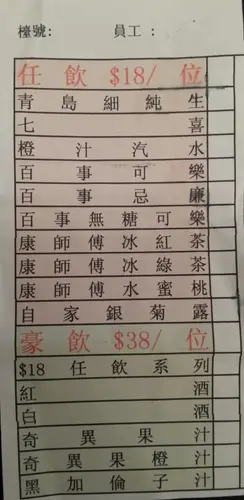 檯號: 員工 :
任飲 $18/ 位
青島細純生
七喜
橙汁汽水
百事可樂
百事忌廉
百事無糖可樂
康師傅冰紅茶
康師傅冰綠茶
康師傅水蜜桃
自家銀菊露
豪飲 $38/ 位
$18 任飲系列
紅酒
白酒
奇異果汁
奇異果橙汁
黑加倫子汁